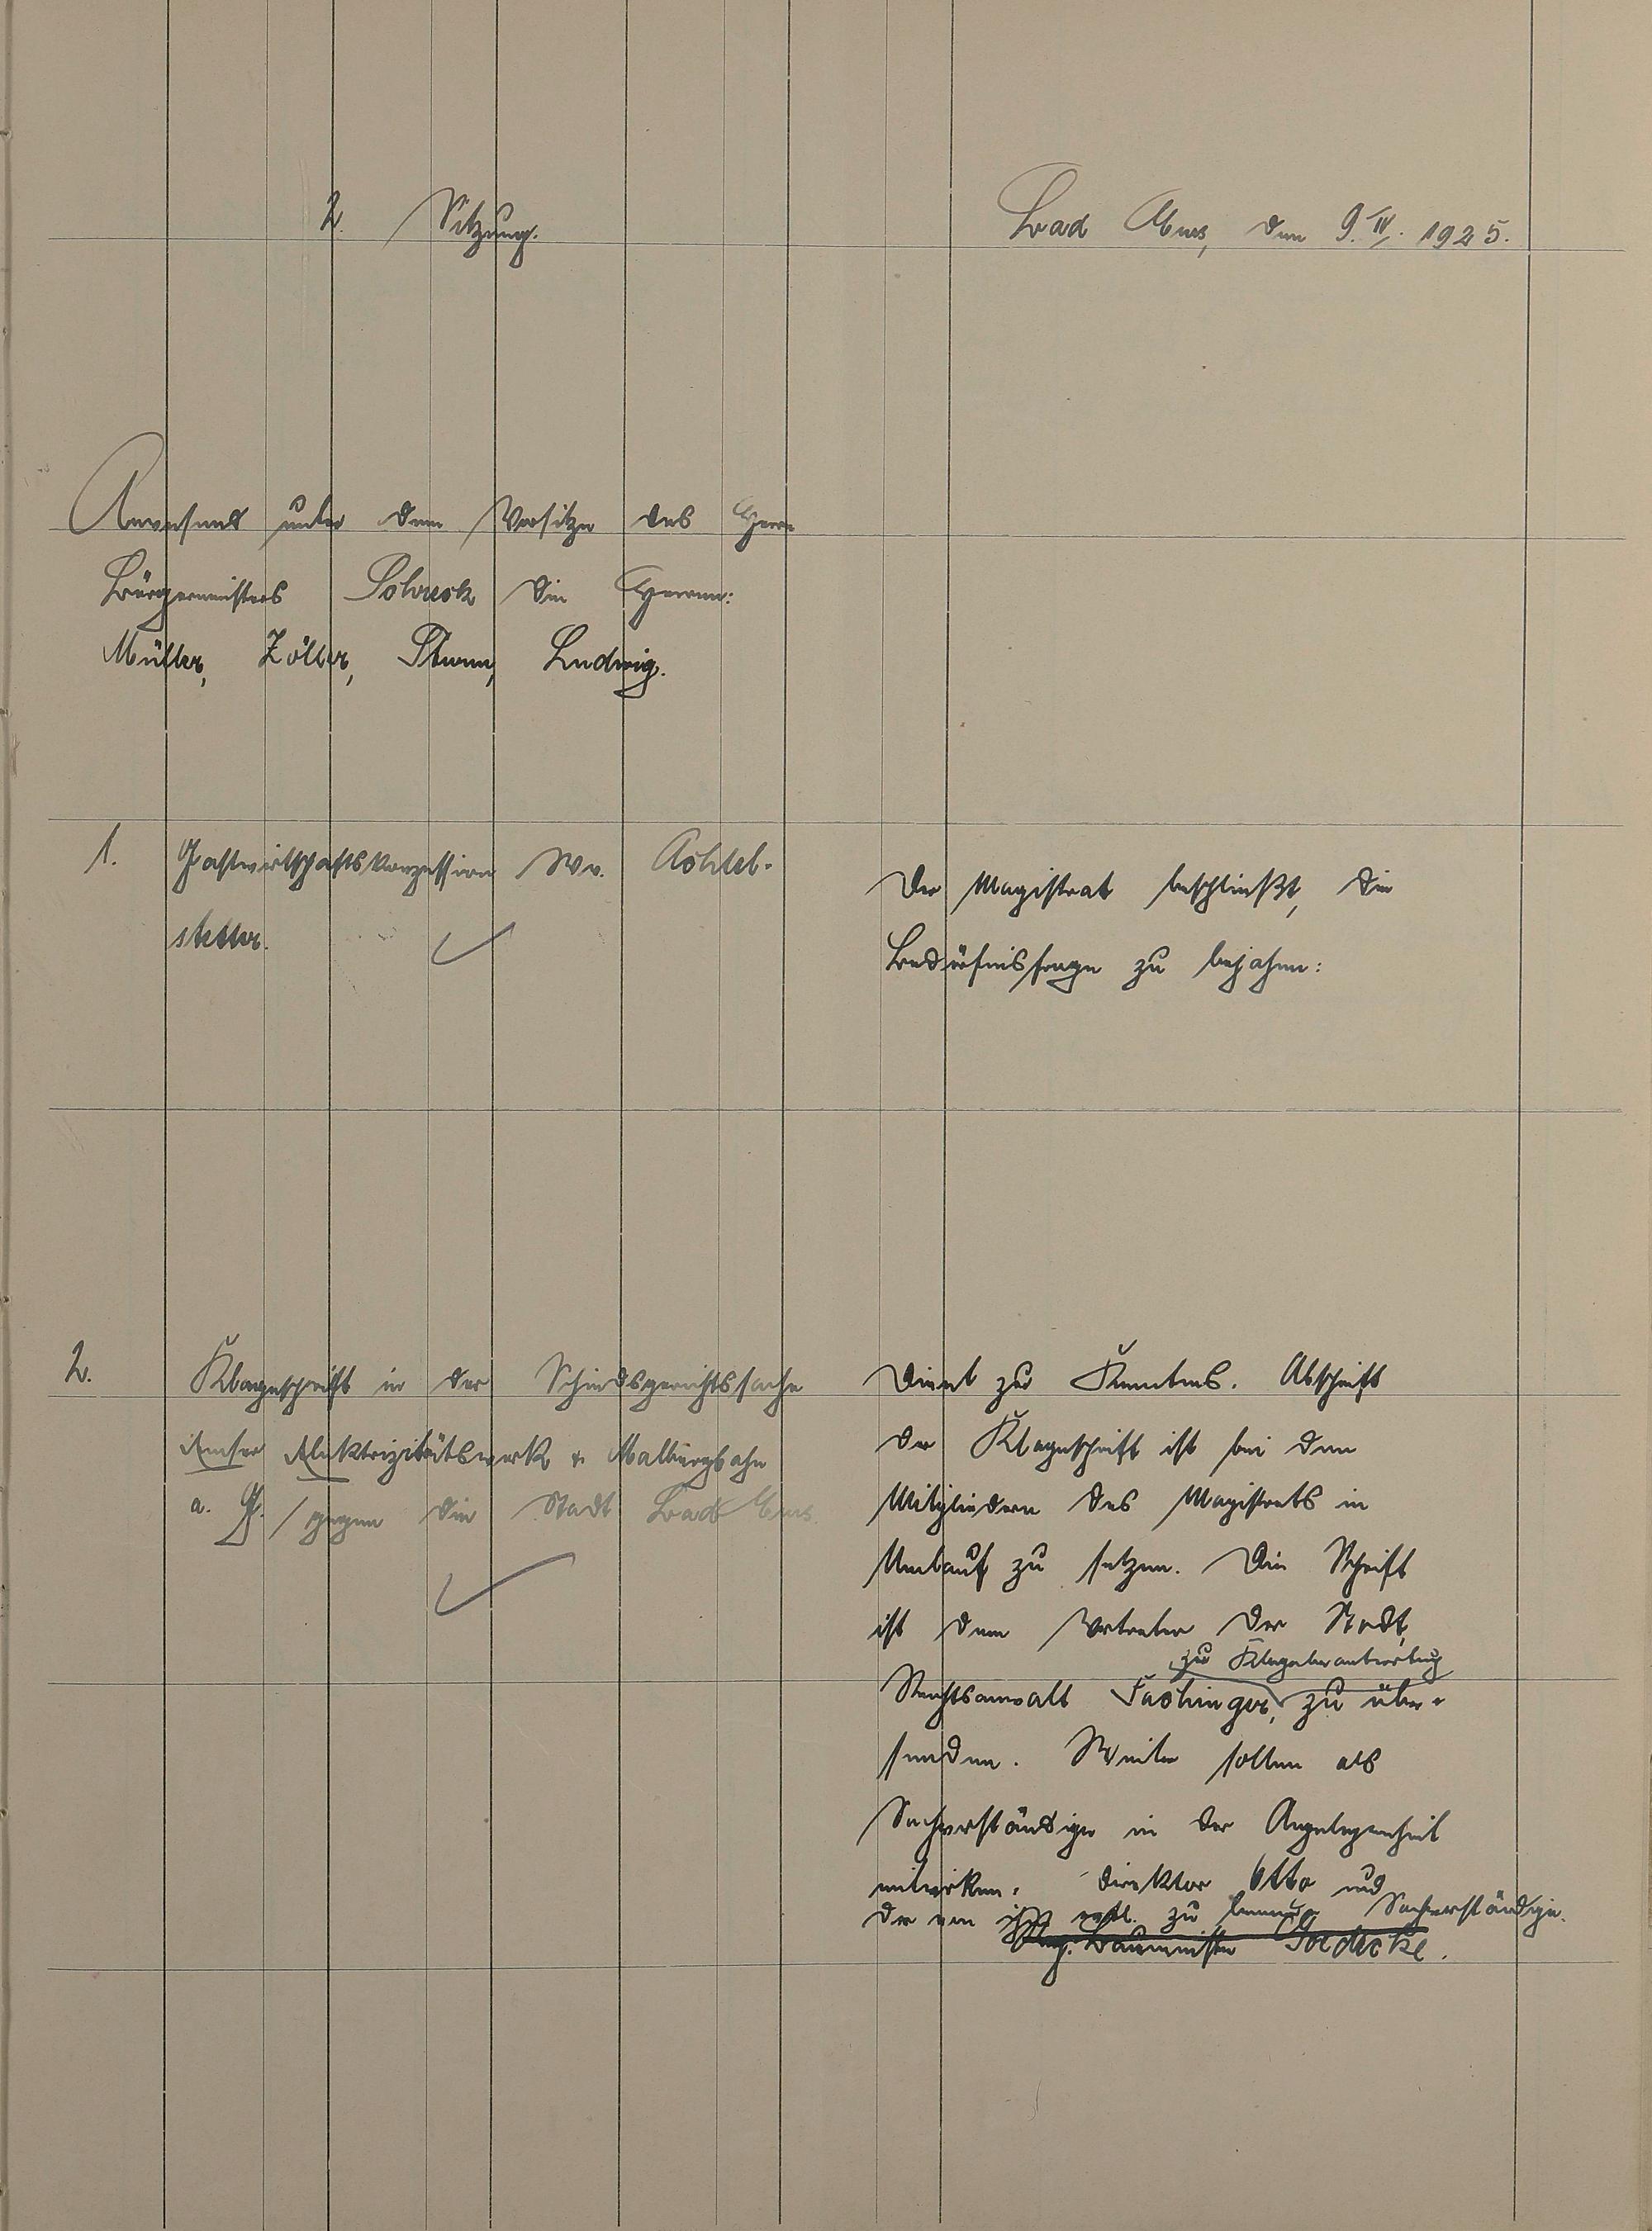 2. Sitzung.
Bad Ems, den 9. IV. 1925.
Anwesend unter dem Vorsitze des Herrn
Bürgermeisters Schreck die Herren:
Müller, Zöller, Thurm, Ludwig.
1. Gastwirtschaftskonzession Ww. Achtel-
stetter.
Der Magistrat beschließt, die
Bedürfnisfrage zu bejahen:
2. Klageschrift in der Schiedsgerichtssache
Emser Elektrizitätswerk u. Malbergbahn
a. G. / gegen die Stadt Bad Ems.
Dient zur Kenntnis. Abschrift
der Klageschrift ist bei den
Mitgliedern des Magistrats in
Umlauf zu setzen. Die Schrift
ist dem Vertreter der Stadt,
zur Klagebeantwortung
Rechtsanwalt Fachinger, zu über-
senden. Weiter sollen als
Sachverständige in der Angelegenheit
mitwirken: Direktor Otto und
der von ihm evtl. zu benennende Sachverständige.
Baumeister Goedecke.